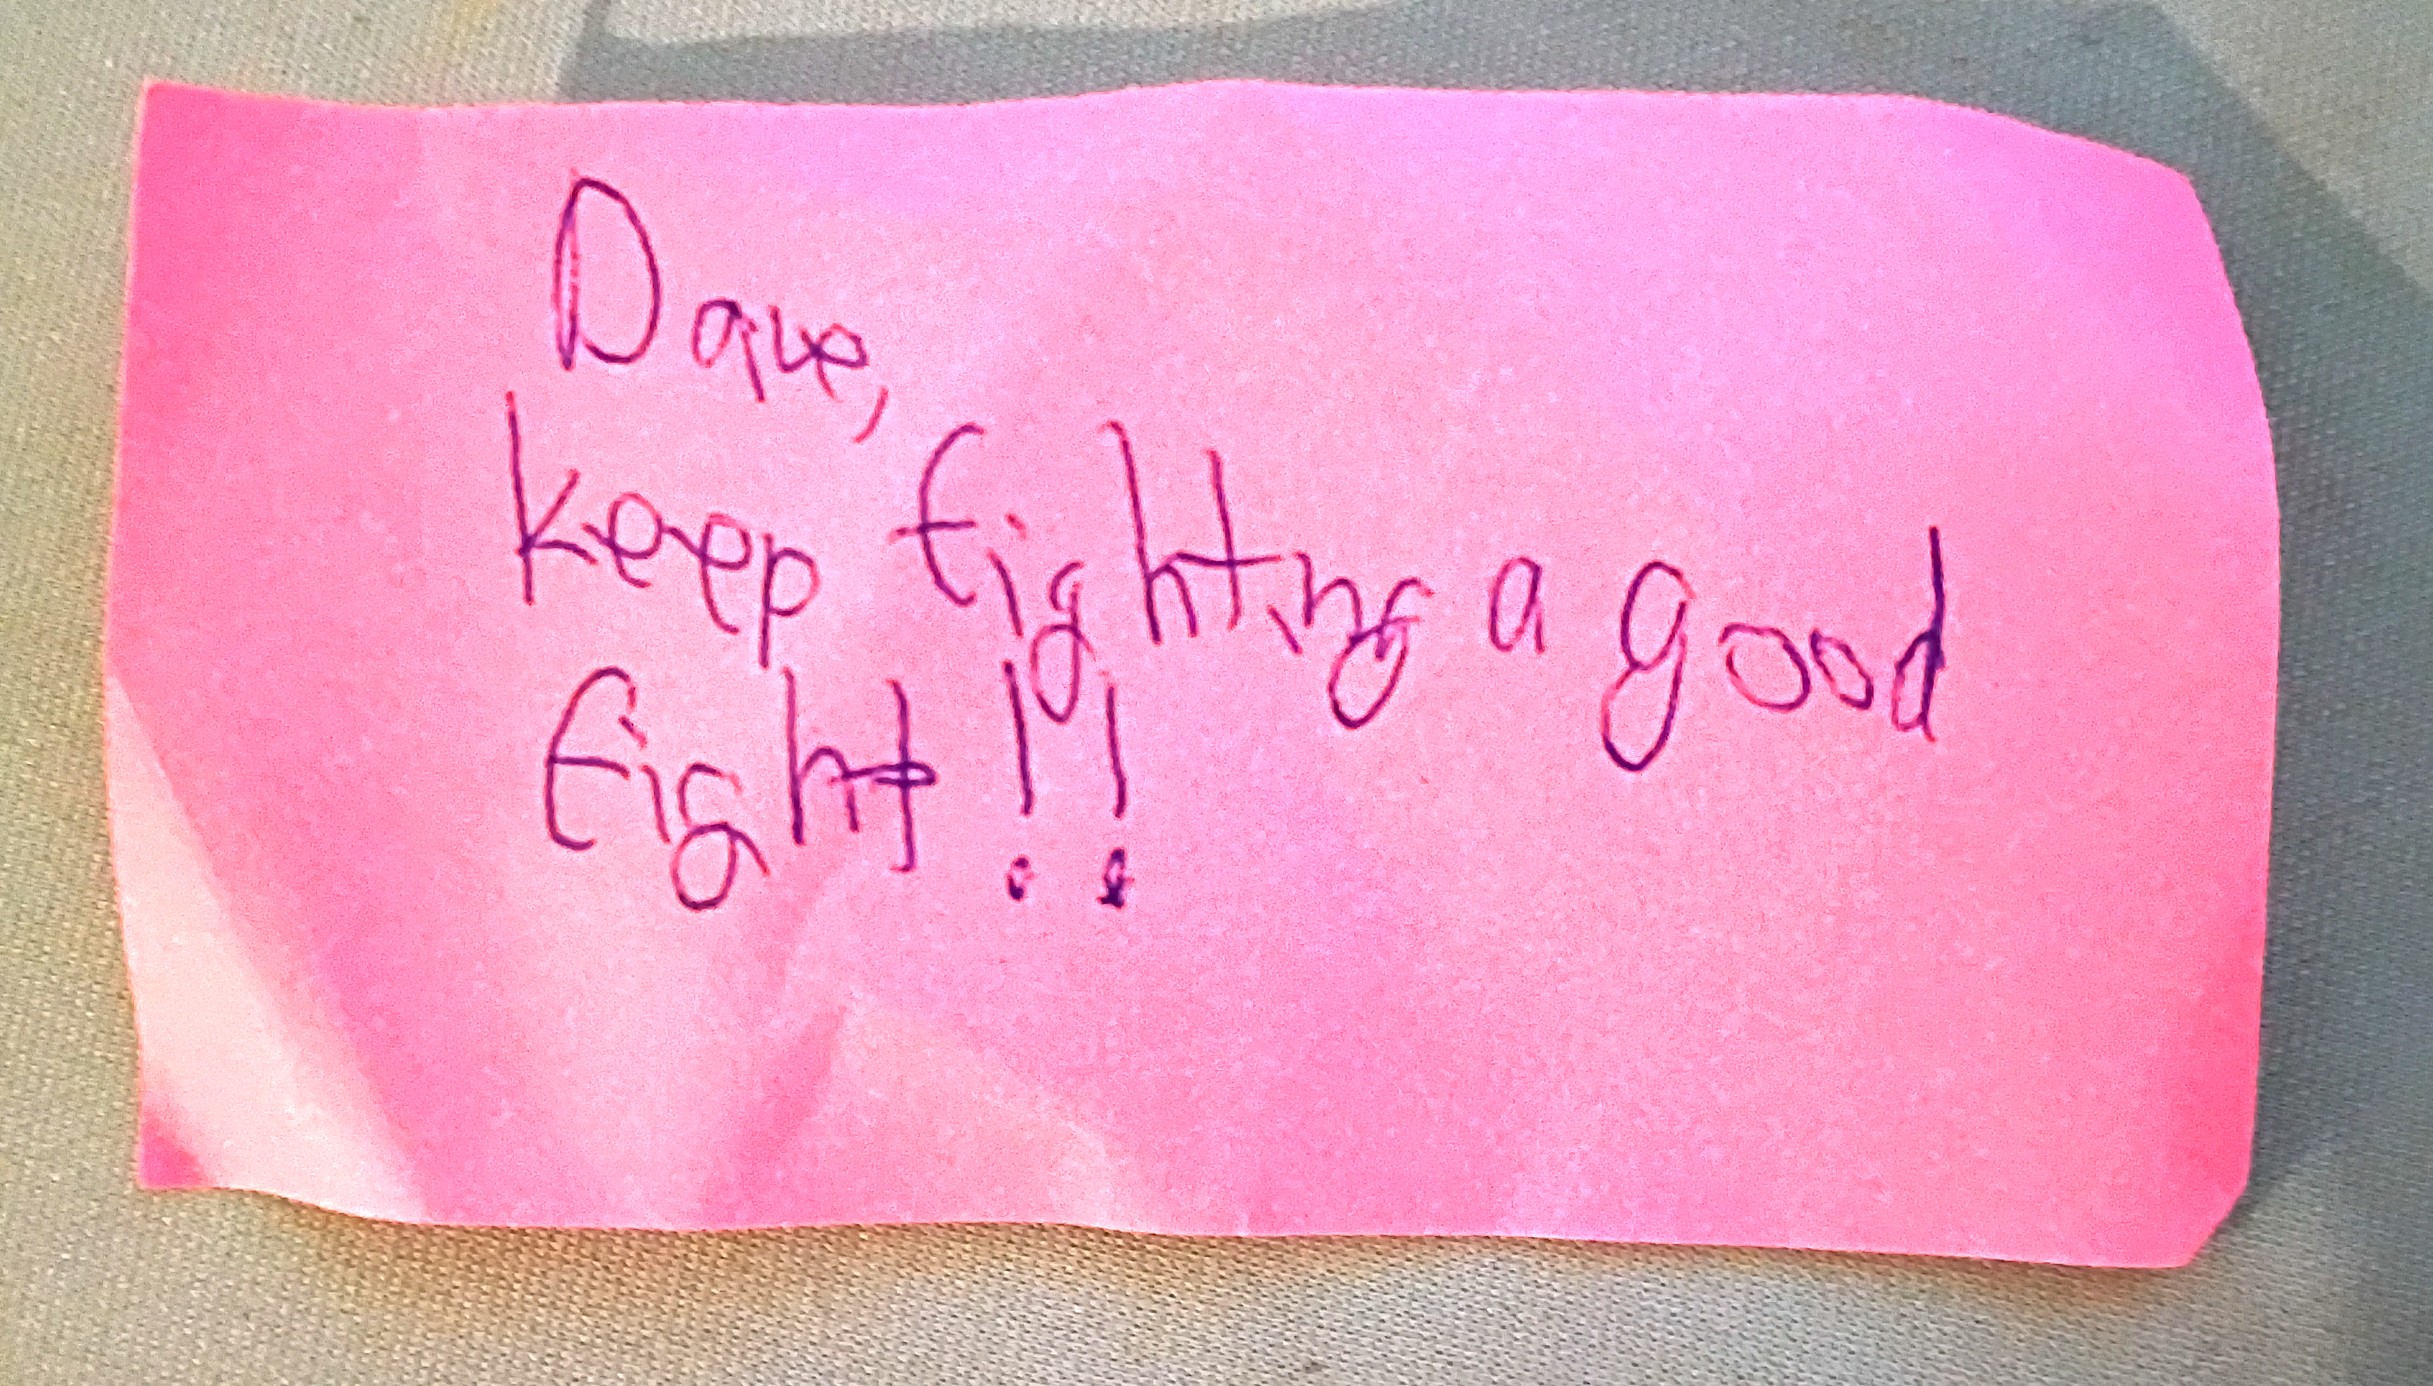 Dave,
keep fighting a good
fight!!